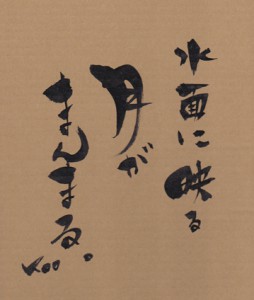 水面に映る
月が
まんまる。